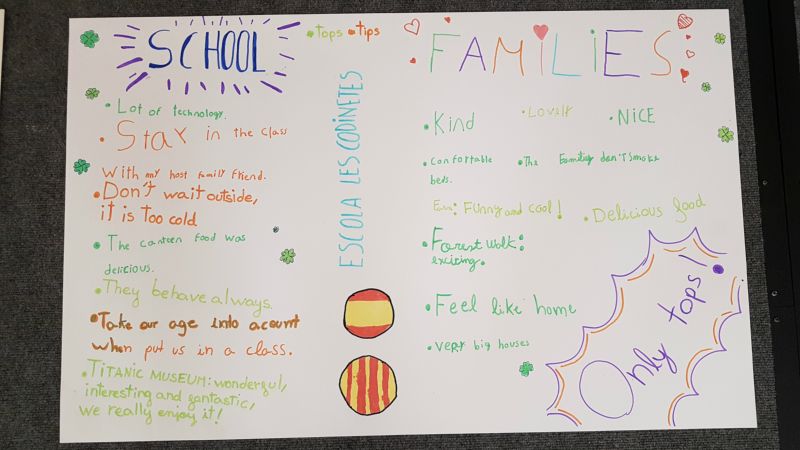 SCHOOL
• Tops • Tips
• Lot of technology.
• Stay in the class
With my host family friend.
• Don't wait outside,
it is too cold
• The canteen food was
delicious.
• They behave always.
• Take our age into acount
when put us in a class.
• TITANIC MUSEUM: wonderful,
interesting and fantastic,
we really enjoy it!
ESCOLA LES CODINETES
FAMILIES
• Kind
• Lovely
• NICE
• Confortable
beds.
• The family don't smoke
Eim: Funny and cool!
• Delicious food
• Forest walk:
exciring.
• Feel like home
• very big houses
Only tops!